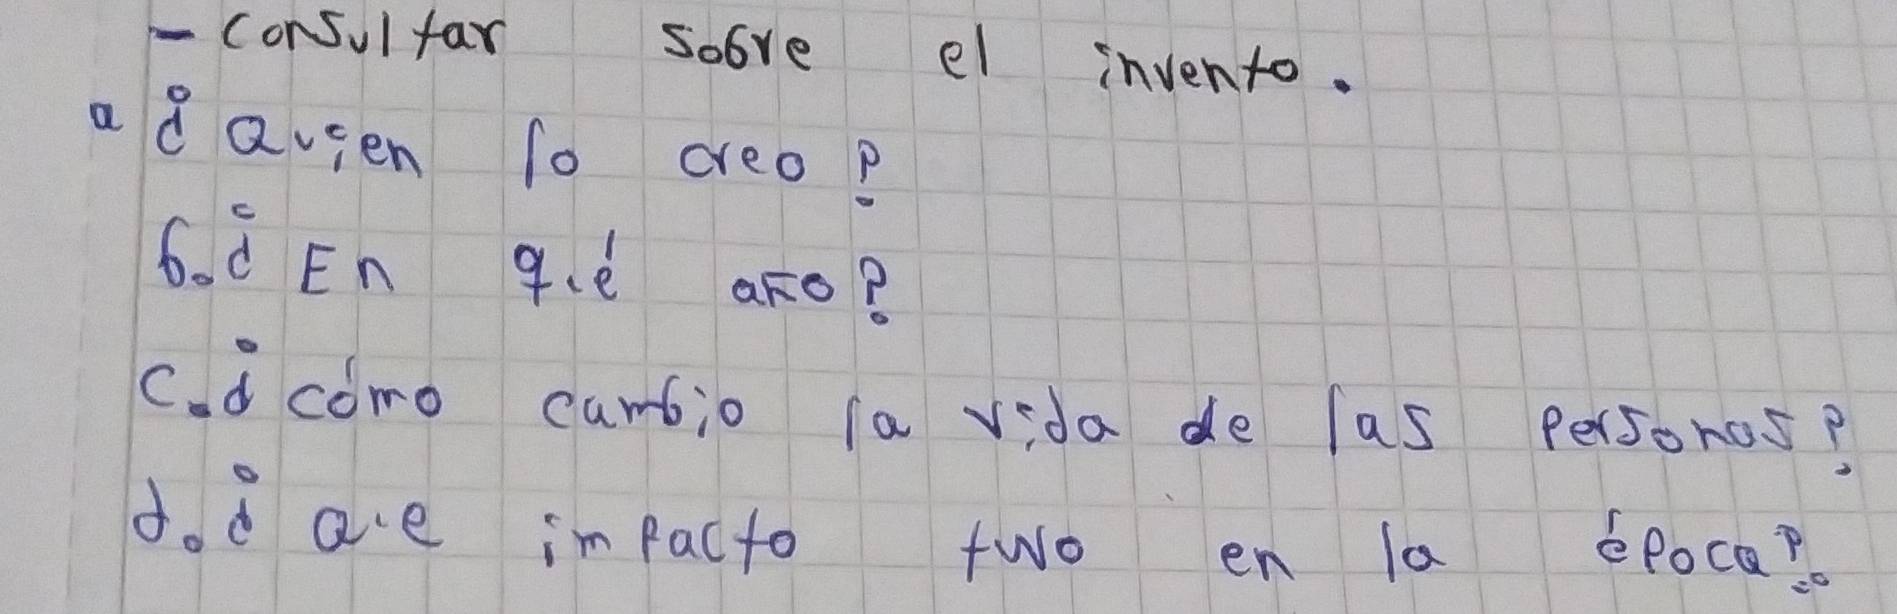 - Consultar sobre el invento.
a ¿Quien lo creo?
b. ¿En qué año?
c. ¿cómo cambio la vida de las personas?
d. ¿Que impacto tuvo en la época?